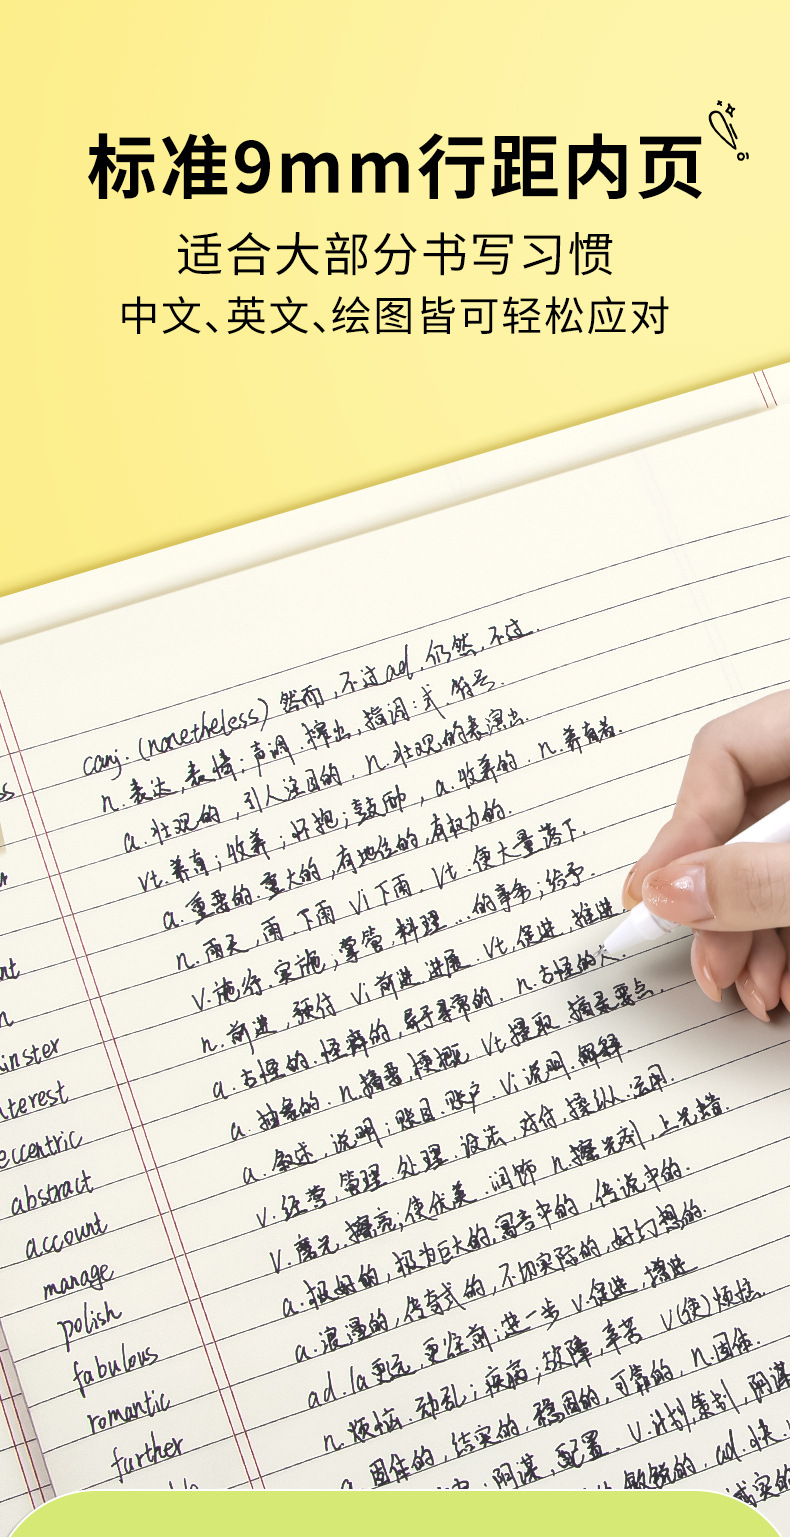 标准9mm行距内页
适合大部分书写习惯
中文、英文、绘图皆可轻松应对
conj. (nonetheless) 然而, 不过 ad. 仍然, 不过.
n. 表达, 表情; 声调. 榨出, 措词; 式. 符号.
a. 壮观的, 引人注目的. n. 壮观的表演出.
vt. 养育; 收养; 怀抱; 鼓励, a. 收养的. n. 养育者.
a. 重要的. 重大的, 有地位的, 有权力的.
n. 雨天, 雨. 下雨 vi 下雨. vt. 使大量落下.
v. 施行. 实施; 掌管, 料理 ... 的事务; 给予.
n. 前进, 预付 vi 前进, 进展. vt, 促进, 推进
a. 古怪的. 怪癖的, 异于寻常的. n. 古怪的人.
a. 抽象的. n. 摘要, 梗概 vt 提取. 摘录要点.
inster
v. 叙述, 说明; 账目. 账户. vi 说明. 解释.
nterest
v. 经营, 管理. 处理. 设法, 对付, 操纵. 运用.
eccentric
v. 磨光, 擦亮; 使优美. 润饰 n. 擦光剂, 上光蜡.
abstract
a. 极好的, 极为巨大的, 寓言中的, 传说中的.
account
a. 浪漫的, 传奇式的, 不切实际的, 好幻想的.
manage
ad. /a 更远, 更往前; 进一步 v. 促进, 增进
polish
n. 烦恼. 动乱; 疾病; 故障, 辛苦 v (使) 烦恼.
fabulous
a. 固体的, 结实的, 稳固的, 可靠的, n. 固体.
romantic
阴谋, 配置. v. 计划, 策划, 阴谋
further
敏锐的, ad. 快
诚实的